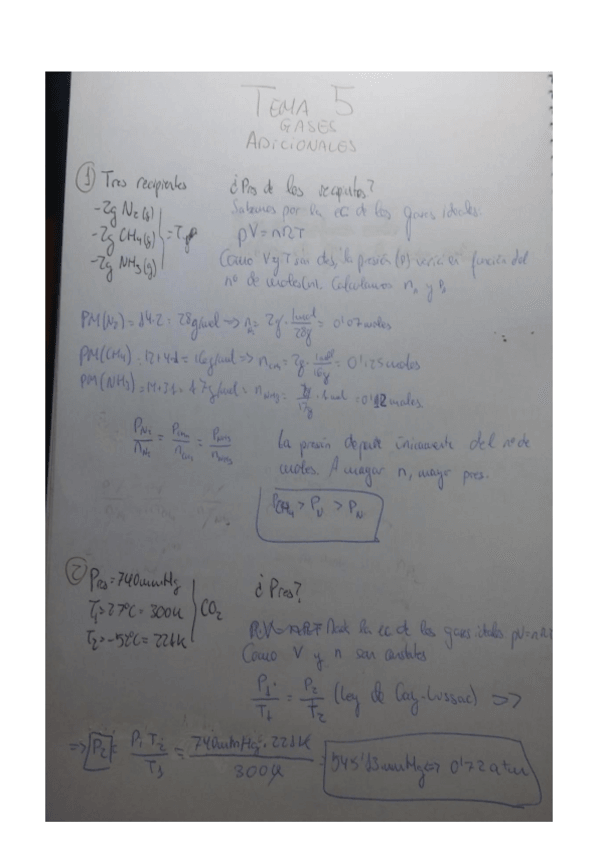 TEMA 5
GASES
ADICIONALES
① Tres recipientes
-2g N2(g)
-2g CH4(g)
-2g NH3(g)
¿Pres de los recipientes?
Sabemos por la ec de los gases ideales:
pV=nRT
Como V y T son ctes, la presión (P) varía en función del
nº de moles(n). Calculamos n, y P,
PM(N2)=14·2=28g/mol => n = 2g · 1mol/28g = 0'07moles
PM(CH4)=12+4·1=16g/mol => n = 2g · 1mol/16g = 0'125moles
PM(NH3)=14+3·1=17g/mol = n = 2g/17g · 1mol = 0'12 moles.
PN2/nN2 = PCH4/nCH4 = PNH3/nNH3
La presión depende únicamente del nº de
moles. A mayor n, mayor pres.
PCH4 > PN > PN
② Pres=740mmHg
T1=27ºC=300K
T2=-52ºC=221K
CO2
¿Pres?
la ec de los gases ideales pV=nRT
Como V y n son constates
P1/T1 = P2/T2 (Ley de Gay-Lussac) =>
=> P2 = P1 T2/T1 = 740mmHg · 221K/300K = 545'13mmHg => 0'72atm